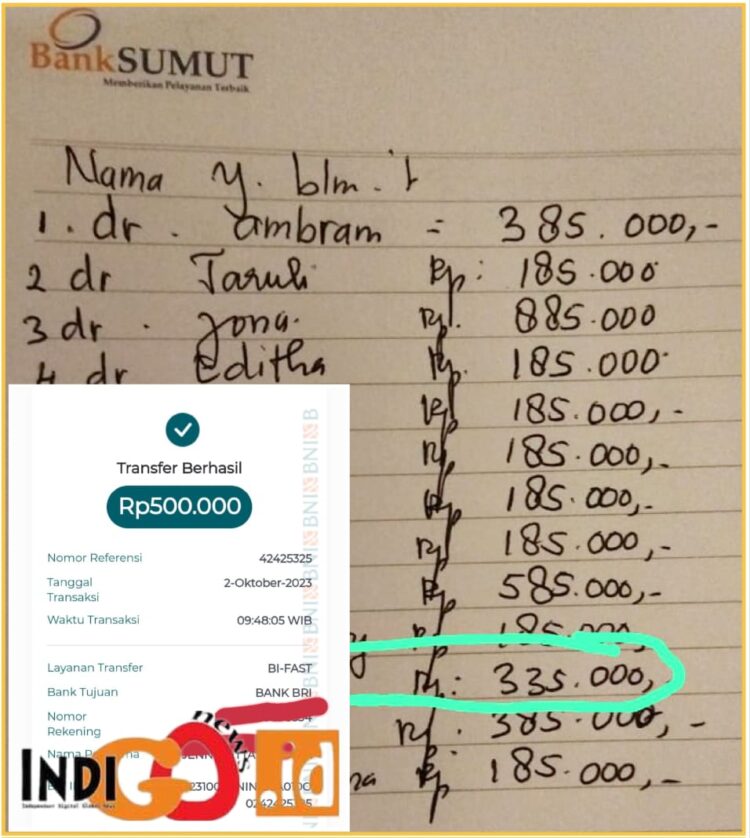 BankSUMUT
Memberikan Pelayanan Terbaik
Nama y. blm.
1. dr. Ambram = 385.000,-
2 dr Taruli Rp: 185.000
3 dr. Jona. Rp. 885.000
4 dr Editha Rp. 185.000
Rp 185.000,-
Rp 185.000,-
Rp 185.000,-
Rp 185.000,-
Rp 585.000,-
Rp 185.000,
Rp: 335.000,
Rp. 385.000,-
Rp 185.000,-
Transfer Berhasil
Rp500.000
Nomor Referensi 42425325
Tanggal Transaksi 2-Oktober-2023
Waktu Transaksi 09:48:05 WIB
Layanan Transfer BI-FAST
Bank Tujuan BANK BRI
Nomor Rekening
BNI BNI BNI BNI BNI B
INDIGO news .id